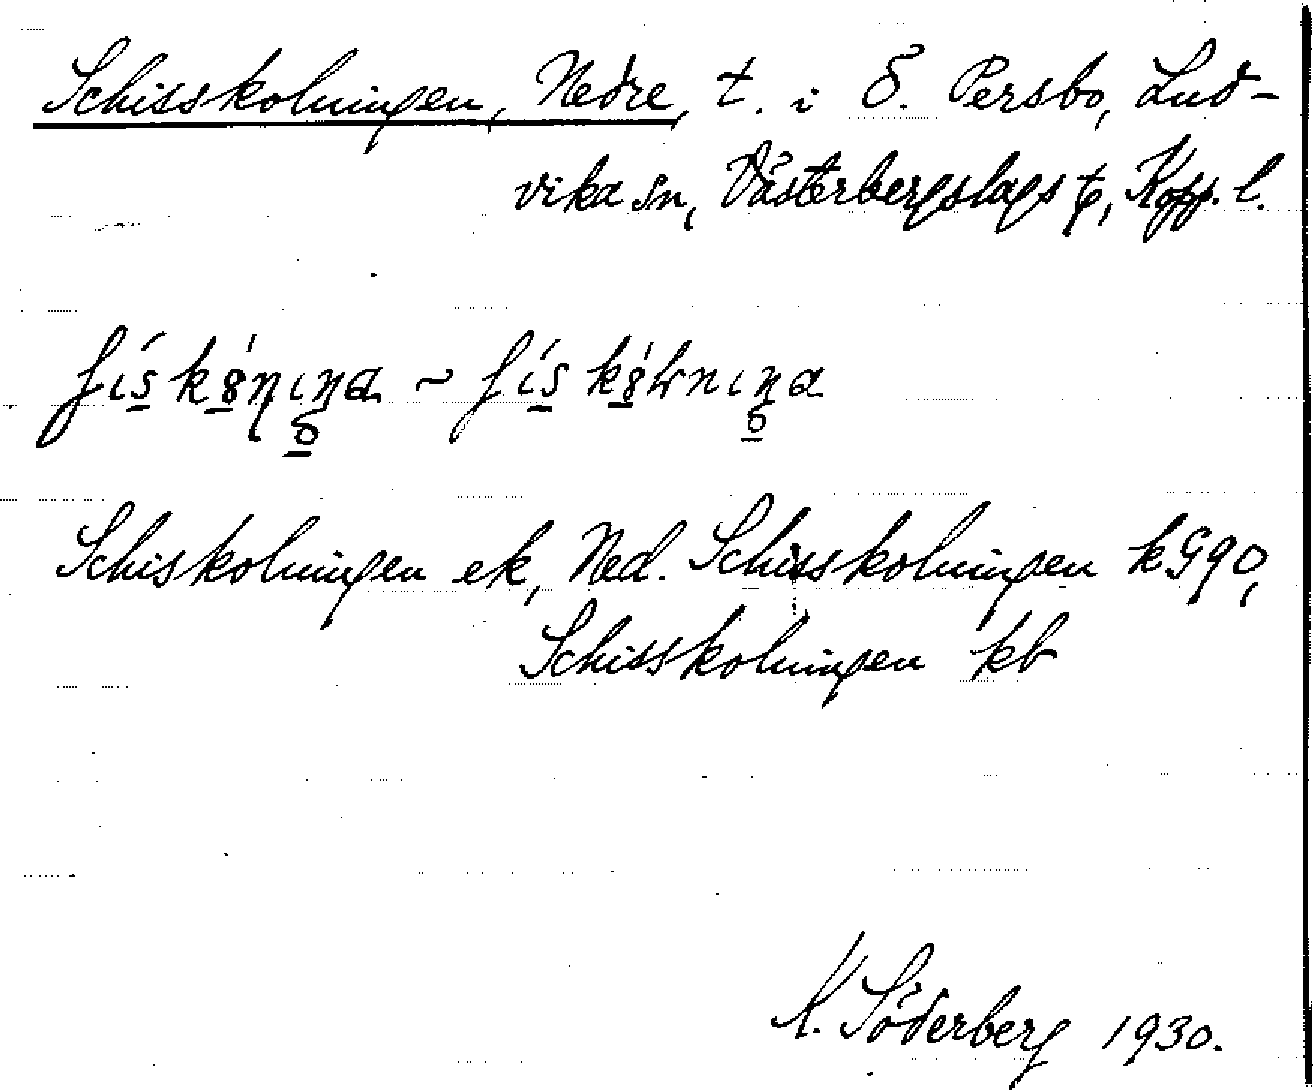 Schisskolningen, Nedre, t. i Ö. Persbo, Lud-
vika sn, Västerbergslags t, Kopp. l.
Schiskolningen ek, Ned. Schisskolningen k G90,
Schisskolningen kb
K. Söderberg 1930.